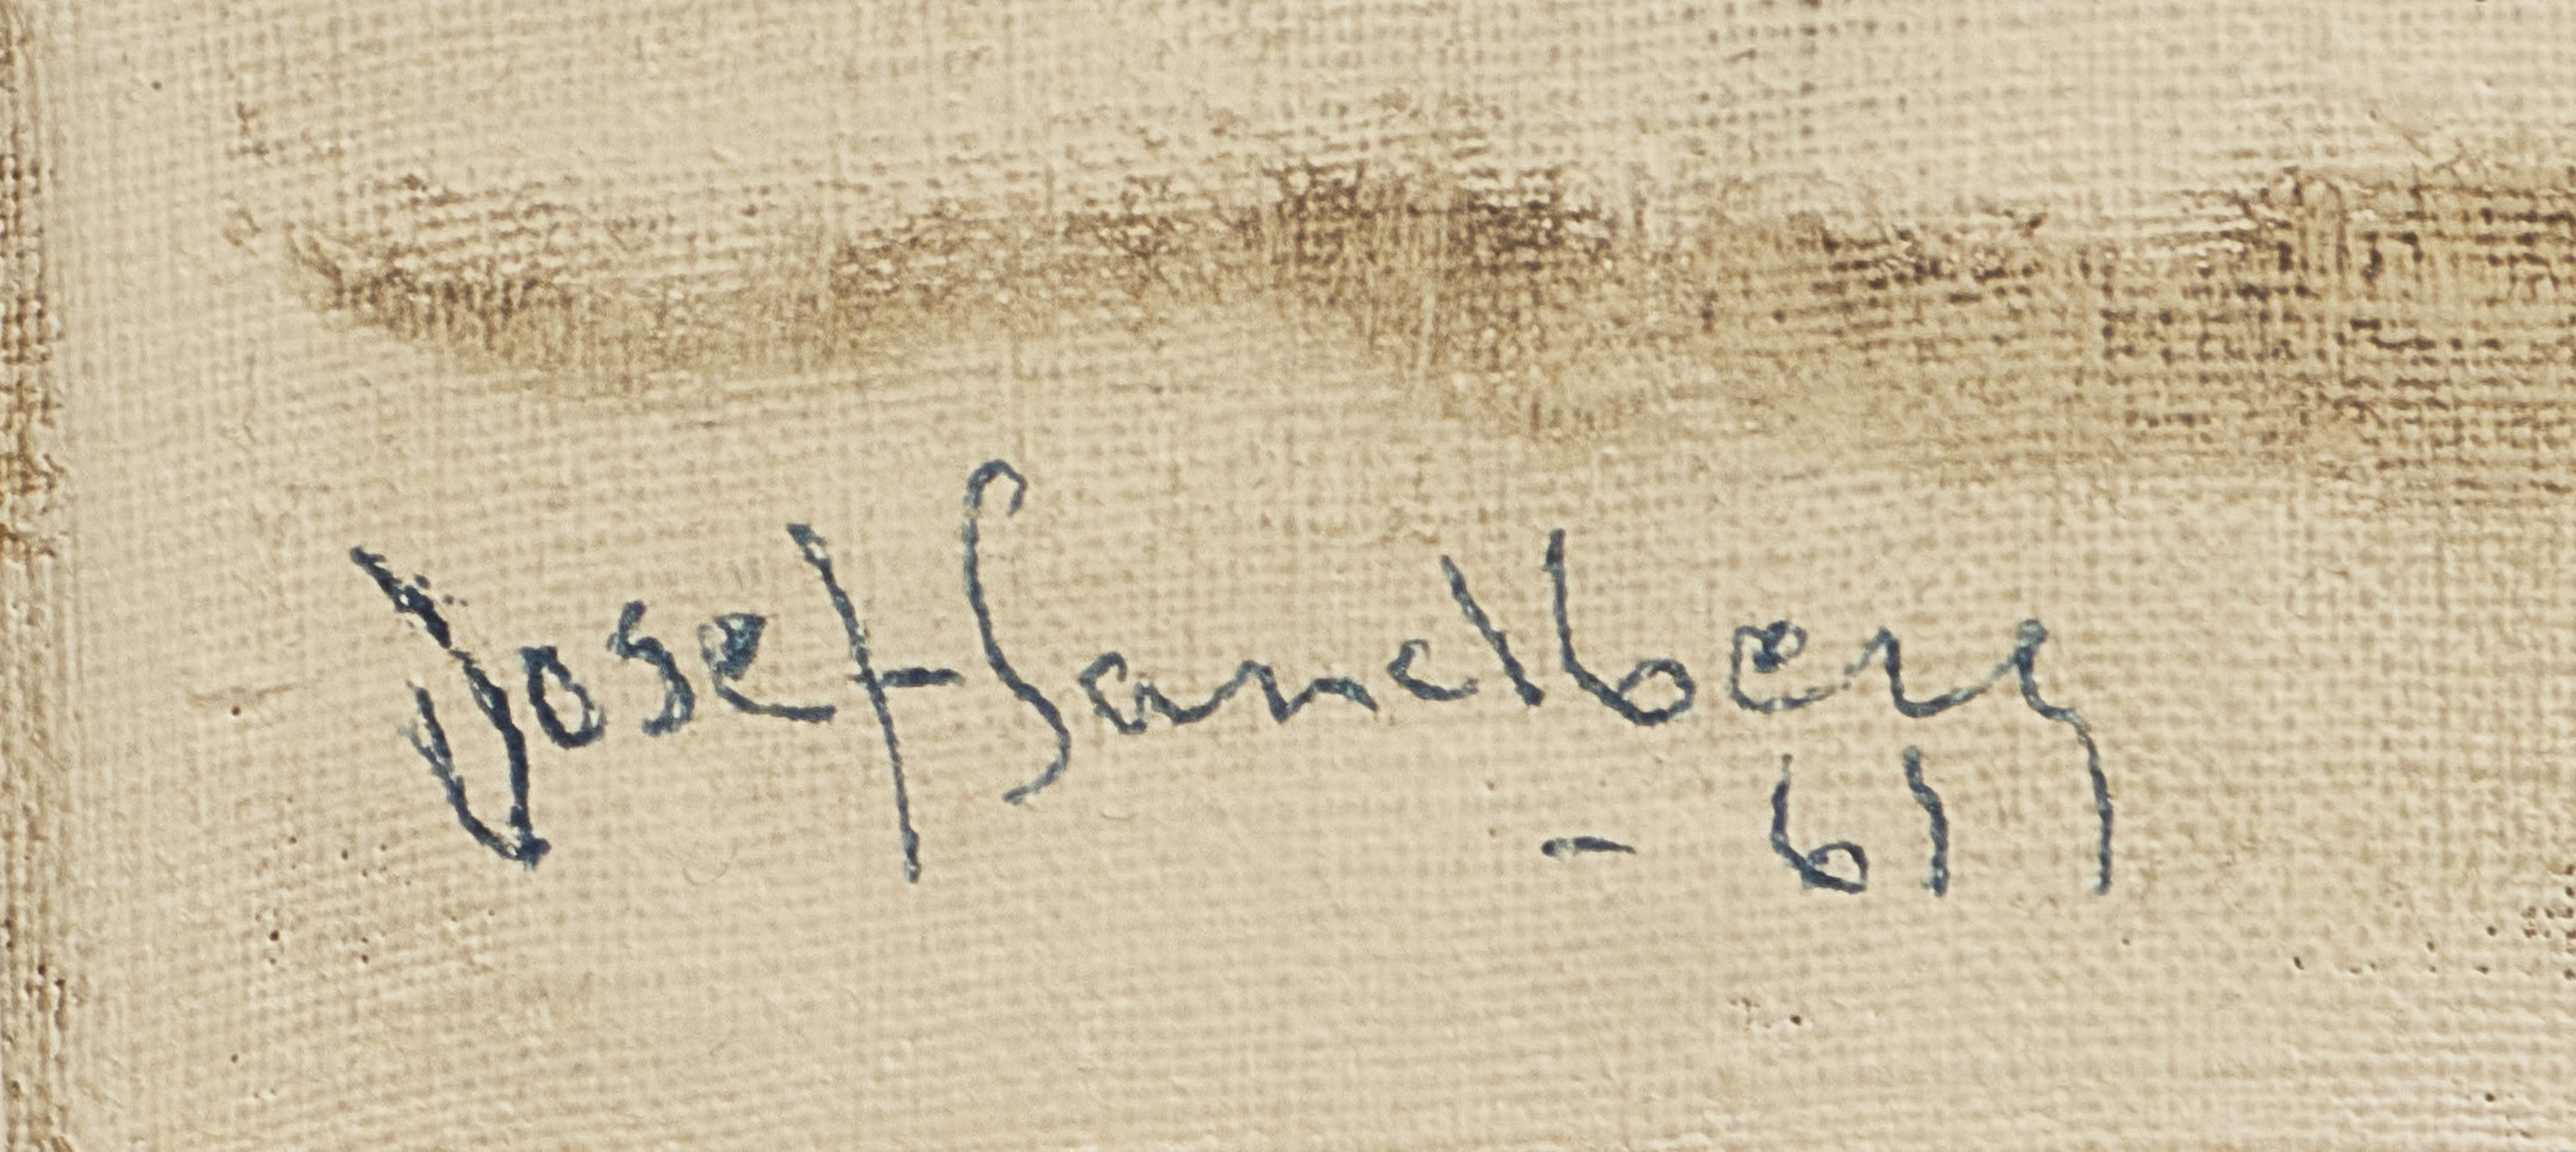 Josef Sandberg
- 61